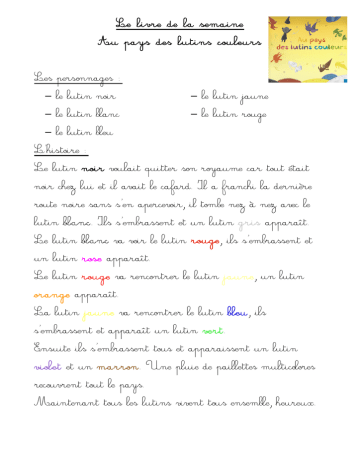 Le livre de la semaine
Au pays des lutins couleurs
Au pays
des lutins couleurs
Les personnages :
– le lutin noir
– le lutin jaune
– le lutin blanc
– le lutin rouge
– le lutin bleu
L'histoire :
Le lutin noir voulait quitter son royaume car tout était
noir chez lui et il avait le cafard. Il a franchi la dernière
route noire sans s'en apercevoir, il tombe nez à nez avec le
lutin blanc. Ils s'embrassent et un lutin gris apparaît.
Le lutin blanc va voir le lutin rouge, ils s'embrassent et
un lutin rose apparaît.
Le lutin rouge va rencontrer le lutin jaune, un lutin
orange apparaît.
La lutin jaune va rencontrer le lutin bleu, ils
s'embrassent et apparaît un lutin vert.
Ensuite ils s'embrassent tous et apparaissent un lutin
violet et un marron. Une pluie de paillettes multicolores
recouvrent tout le pays.
Maintenant tous les lutins vivent tous ensemble, heureux.